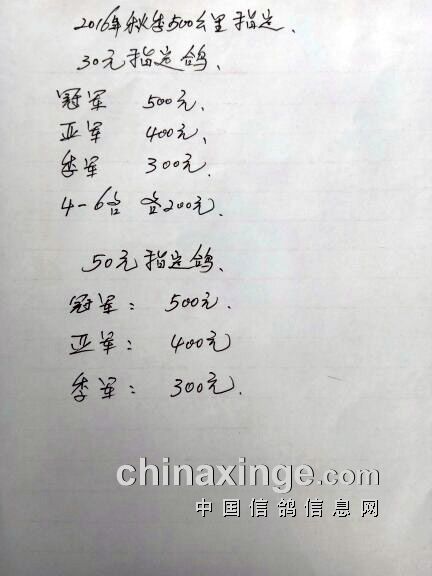 2016年秋季500公里指定.
30元指定鸽.
冠军 500元.
亚军 400元.
季军 300元.
4-6名 各200元.
50元指定鸽.
冠军: 500元.
亚军: 400元
季军: 300元.
chinaxinge.com
中国信鸽信息网